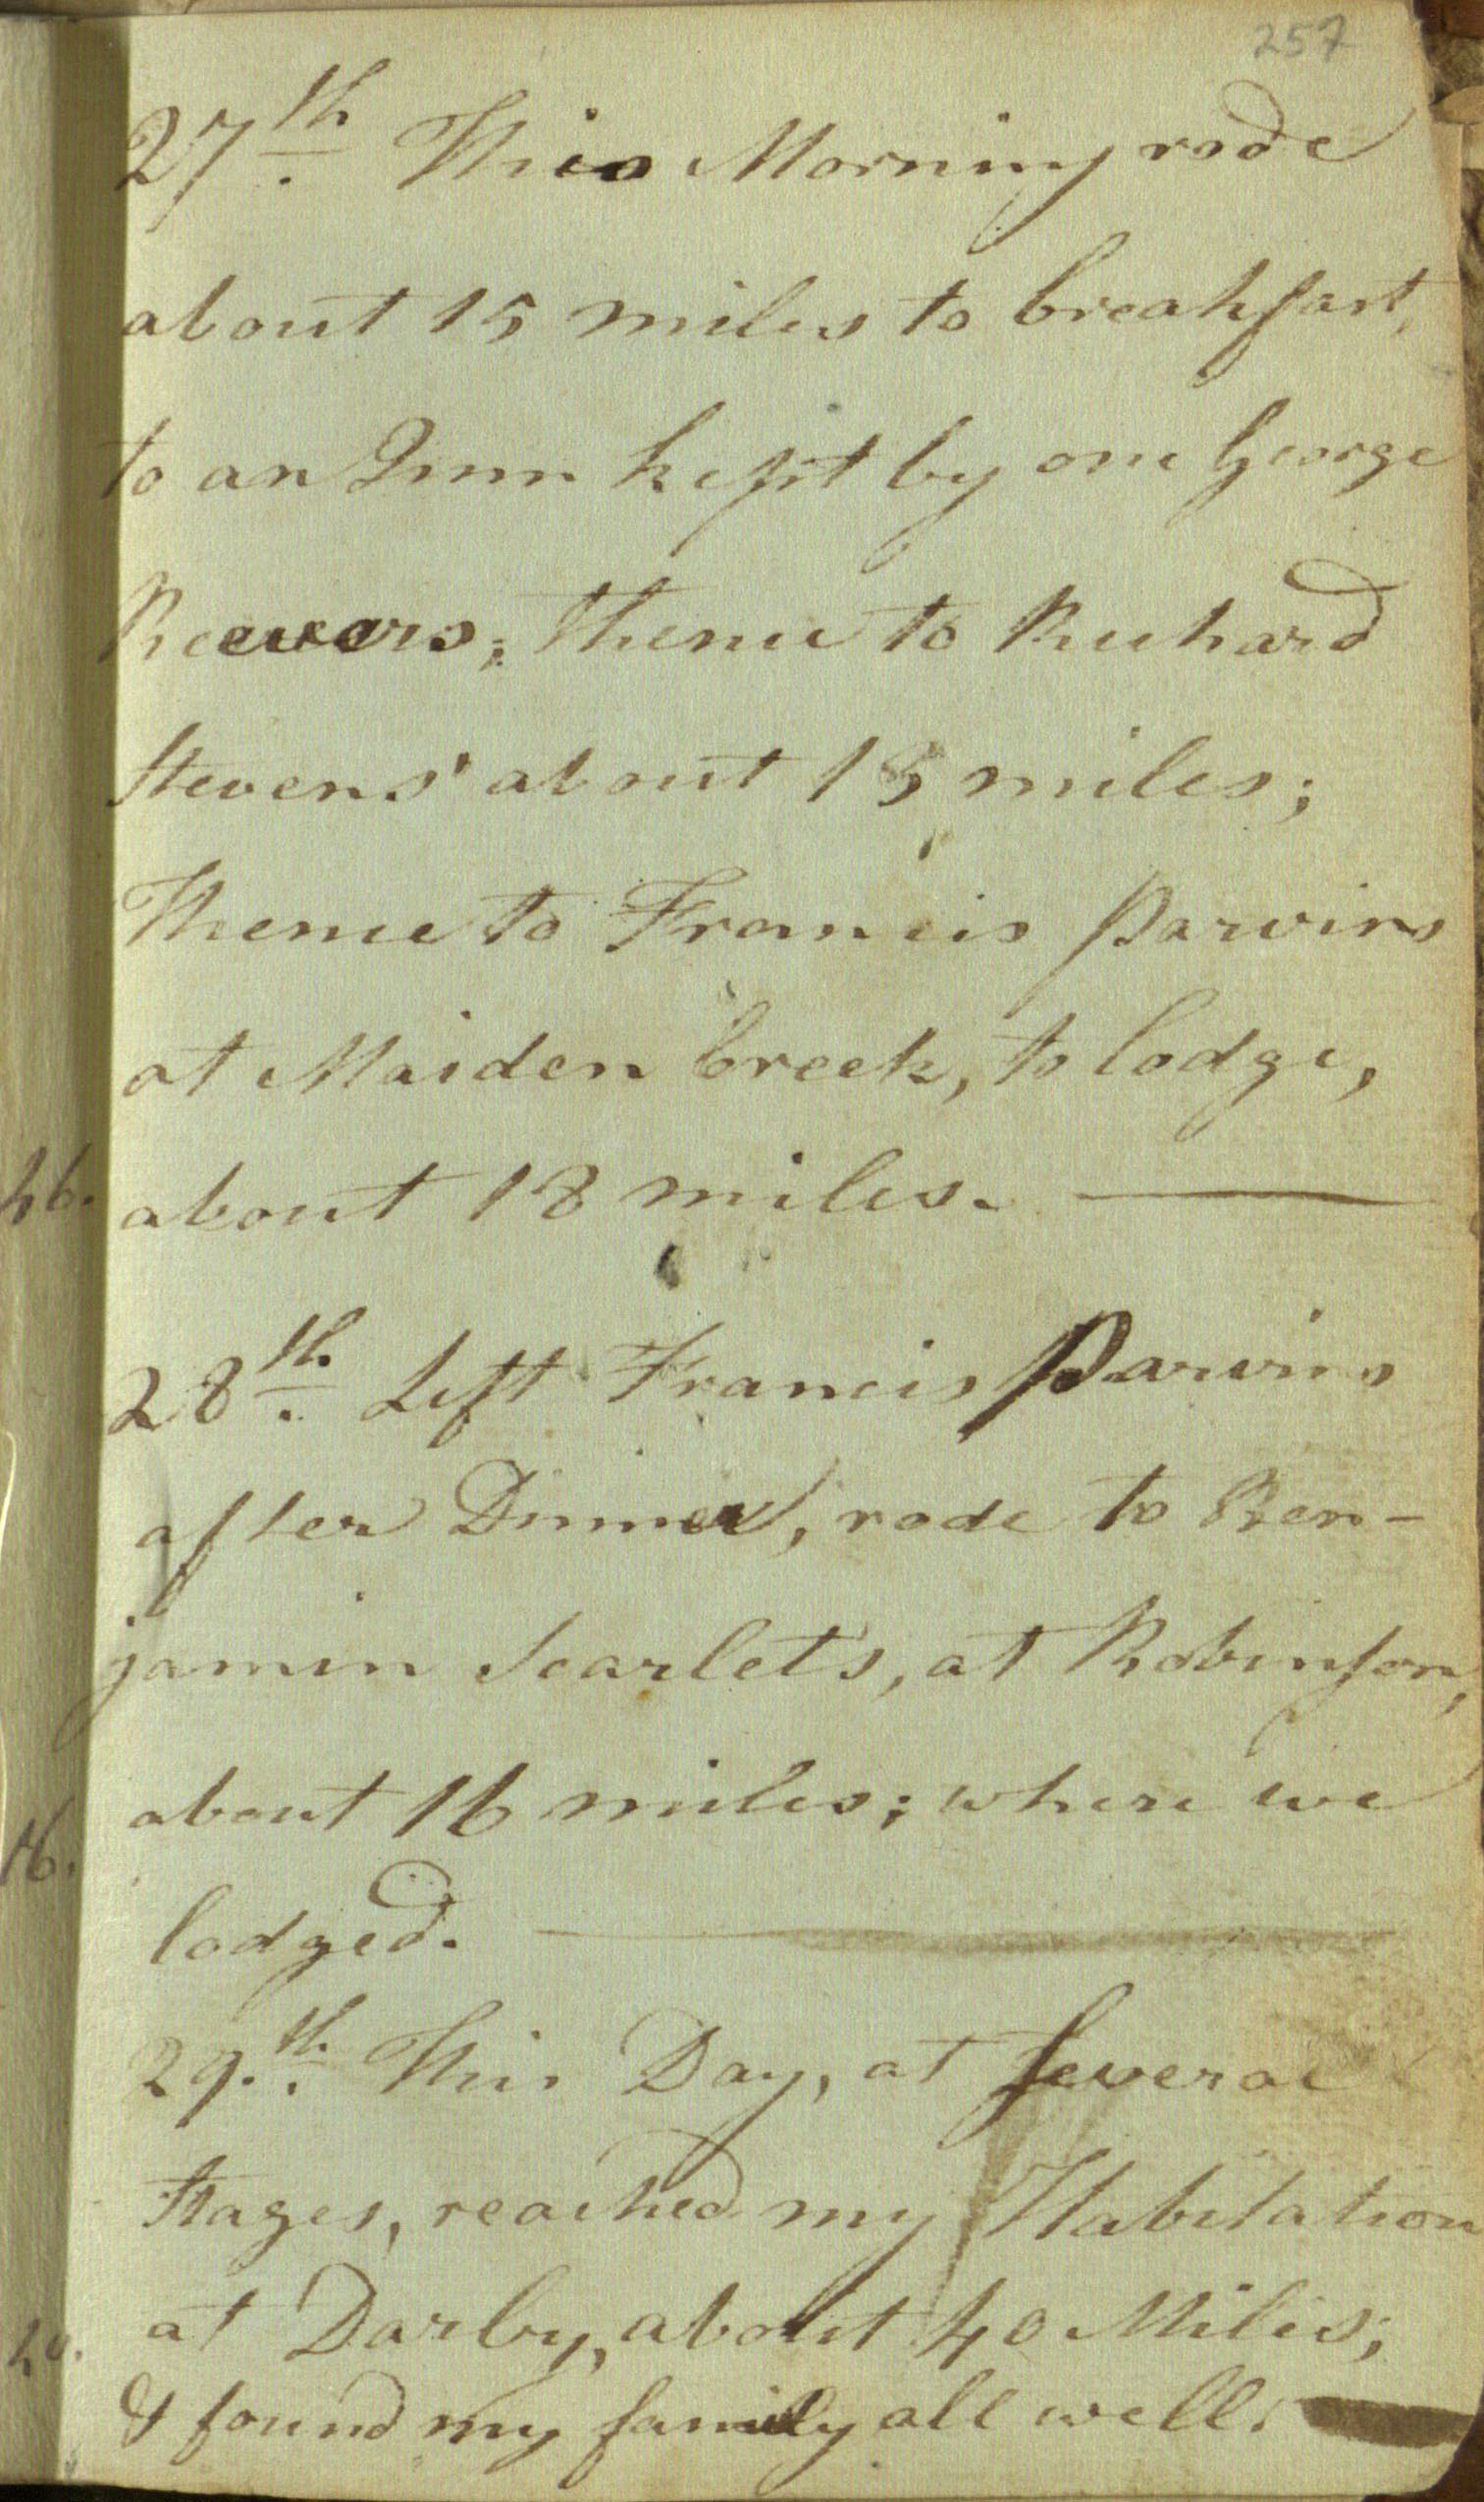 257
27th. This Morning rode
about 15 miles to breakfast,
to an Inn kept by one George
Reevers; thence to Richard
Stevens' about 15 miles;
Thence to Francis Parvins
at Maiden Creek, to lodge,
46. about 18 miles.
28th. Left Francis Parvins
after Dinner, rode to Ben-
jamin Scarlets, at Robinson,
about 16 miles; where we
16. lodged.
29.th. This Day, at several
Stages, reached my Habitation
at Darby, about 40 Miles;
& found my family all well.